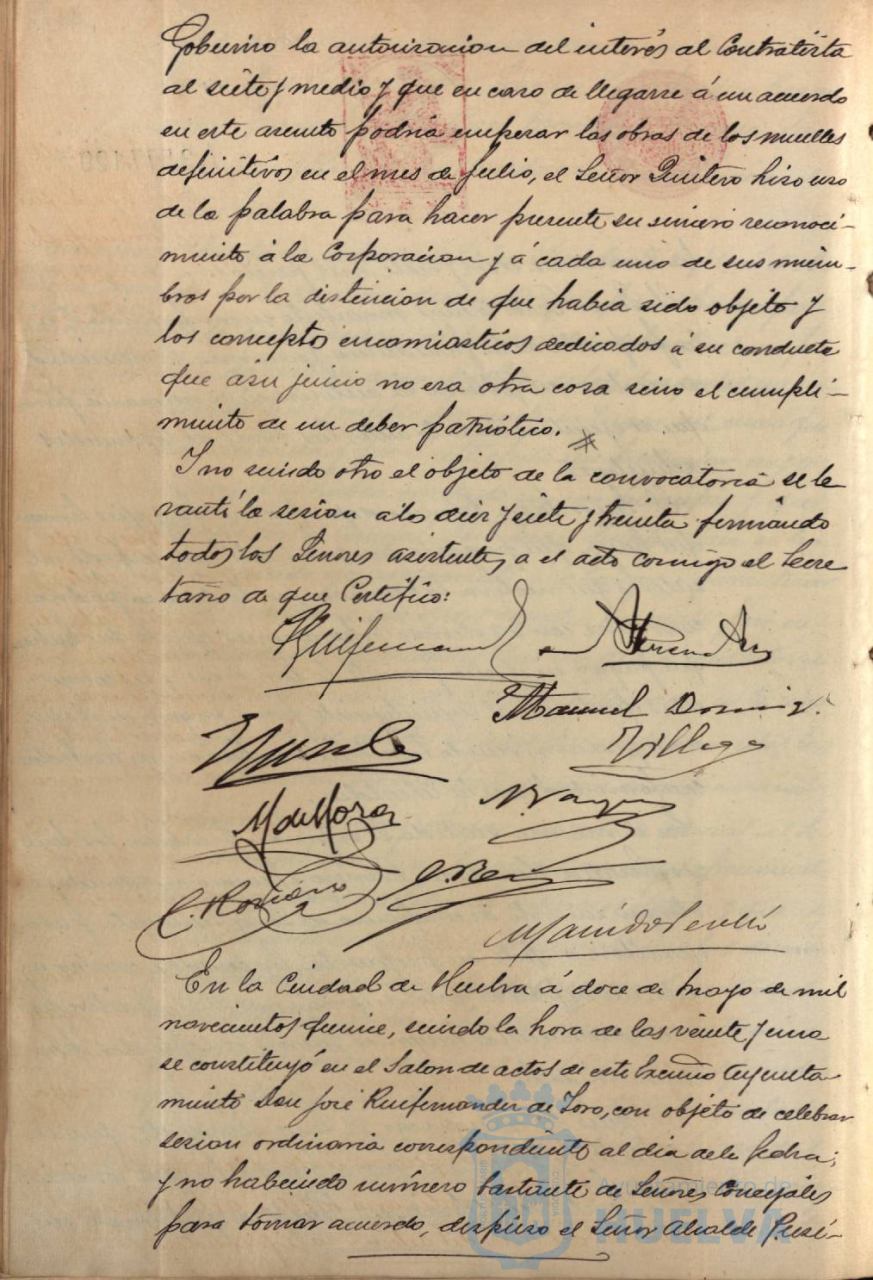 Gobierno la autorizacion del interés al Contratista
al siete y medio y que en caso de llegarse á un acuerdo
en este asunto podria empezar las obras de los muelles
definitivos en el mes de Julio, el Señor Quintero hizo uso
de la palabra para hacer presente su sincero reconoci-
miento á la Corporacion y á cada uno de sus miem-
bros por la distincion de que habia sido objeto y
los conceptos encomiasticos dedicados á su conducta
que á su juicio no era otra cosa sino el cumpli-
miento de un deber patriótico.
Y no siendo otro el objeto de la convocatoria se le
vantó la sesion á las diez y siete y treinta firmando
todos los Señores asistentes a el acto conmigo el Secre
tario de que Certifico:
Manuel Doming.
Villega
M de Mora
En la Ciudad de Huelva á doce de Mayo de mil
novecientos quince, siendo la hora de las veinte y una
se constituyó en el Salon de actos de este Excmo Ayunta
miento Don José Ruifernandez de Toro, con objeto de celebrar
sesion ordinaria correspondiente al dia de la fecha;
y no habiendo número bastante de Señores Concejales
para tomar acuerdo, dispuso el Señor Alcalde Presi-
Ayuntamiento de
HUELVA